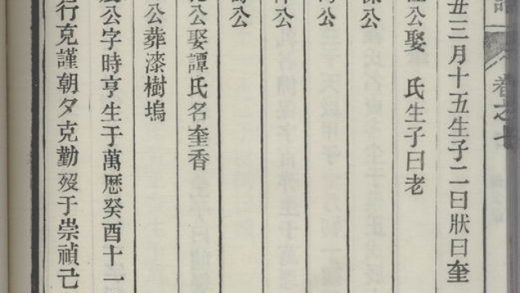 卷之七
丑三月十五生子二曰狀曰奎
公娶　氏生子曰老
公
公
公
公
公娶譚氏名奎香
公葬漆樹塢
公字時亨生于萬曆癸酉十一
行克謹朝夕克勤歿于崇禎己